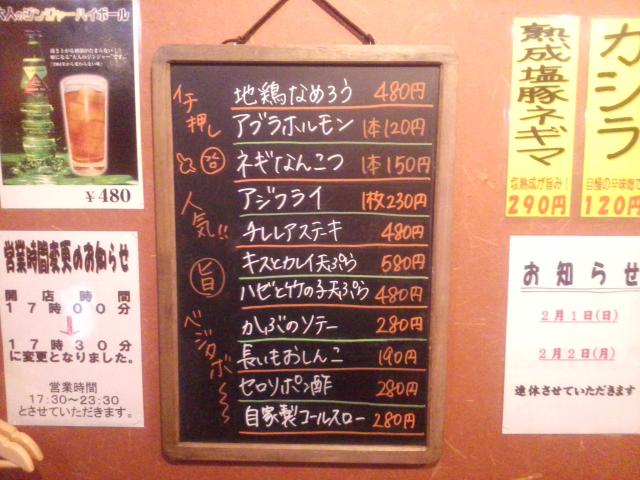 大人のジンジャーハイボール
¥480
営業時間変更のお知らせ
開店時間
17時00分
↓
17時30分
に変更となりました。
営業時間
17:30~23:30
とさせていただきます。
イチ押し
人気!!
旨
ベジタボ~
地鶏なめろう 480円
アブラホルモン 1本120円
ネギなんこつ 1本150円
アジフライ 1枚230円
チレレアステーキ 480円
キスとカレイ天ぷら 580円
ハゼと竹の子天ぷら 480円
かぶのソテー 280円
長いもおしんこ 190円
セロリポン酢 280円
自家製コールスロー 280円
熟成塩豚ネギマ
塩熟成が旨み!
290円
カシラ
自慢の辛味噌で
120円
お知らせ
2月1日(日)
2月2日(月)
連休させていただきます